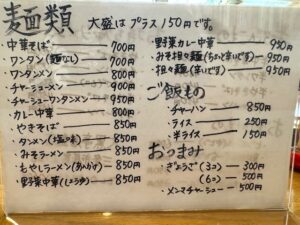 麺類 大盛はプラス150円です。
中華そば 700円
ワンタン(麺なし) 700円
ワンタンメン 800円
チャーシューメン 900円
チャーシューワンタンメン 950円
カレー中華 800円
やきそば 850円
タンメン(塩味) 850円
みそラーメン 850円
もやしラーメン(あんかけ) 850円
野菜中華(しょうゆ) 850円
野菜カレー中華 950円
みそ担々麺(ちょと辛いです) 950円
担々麺(辛いです) 950円
ご飯もの
チャーハン 850円
ライス 250円
半ライス 150円
おつまみ
ぎょうざ(3コ) 300円
(6コ) 500円
メンマチャーシュー 500円